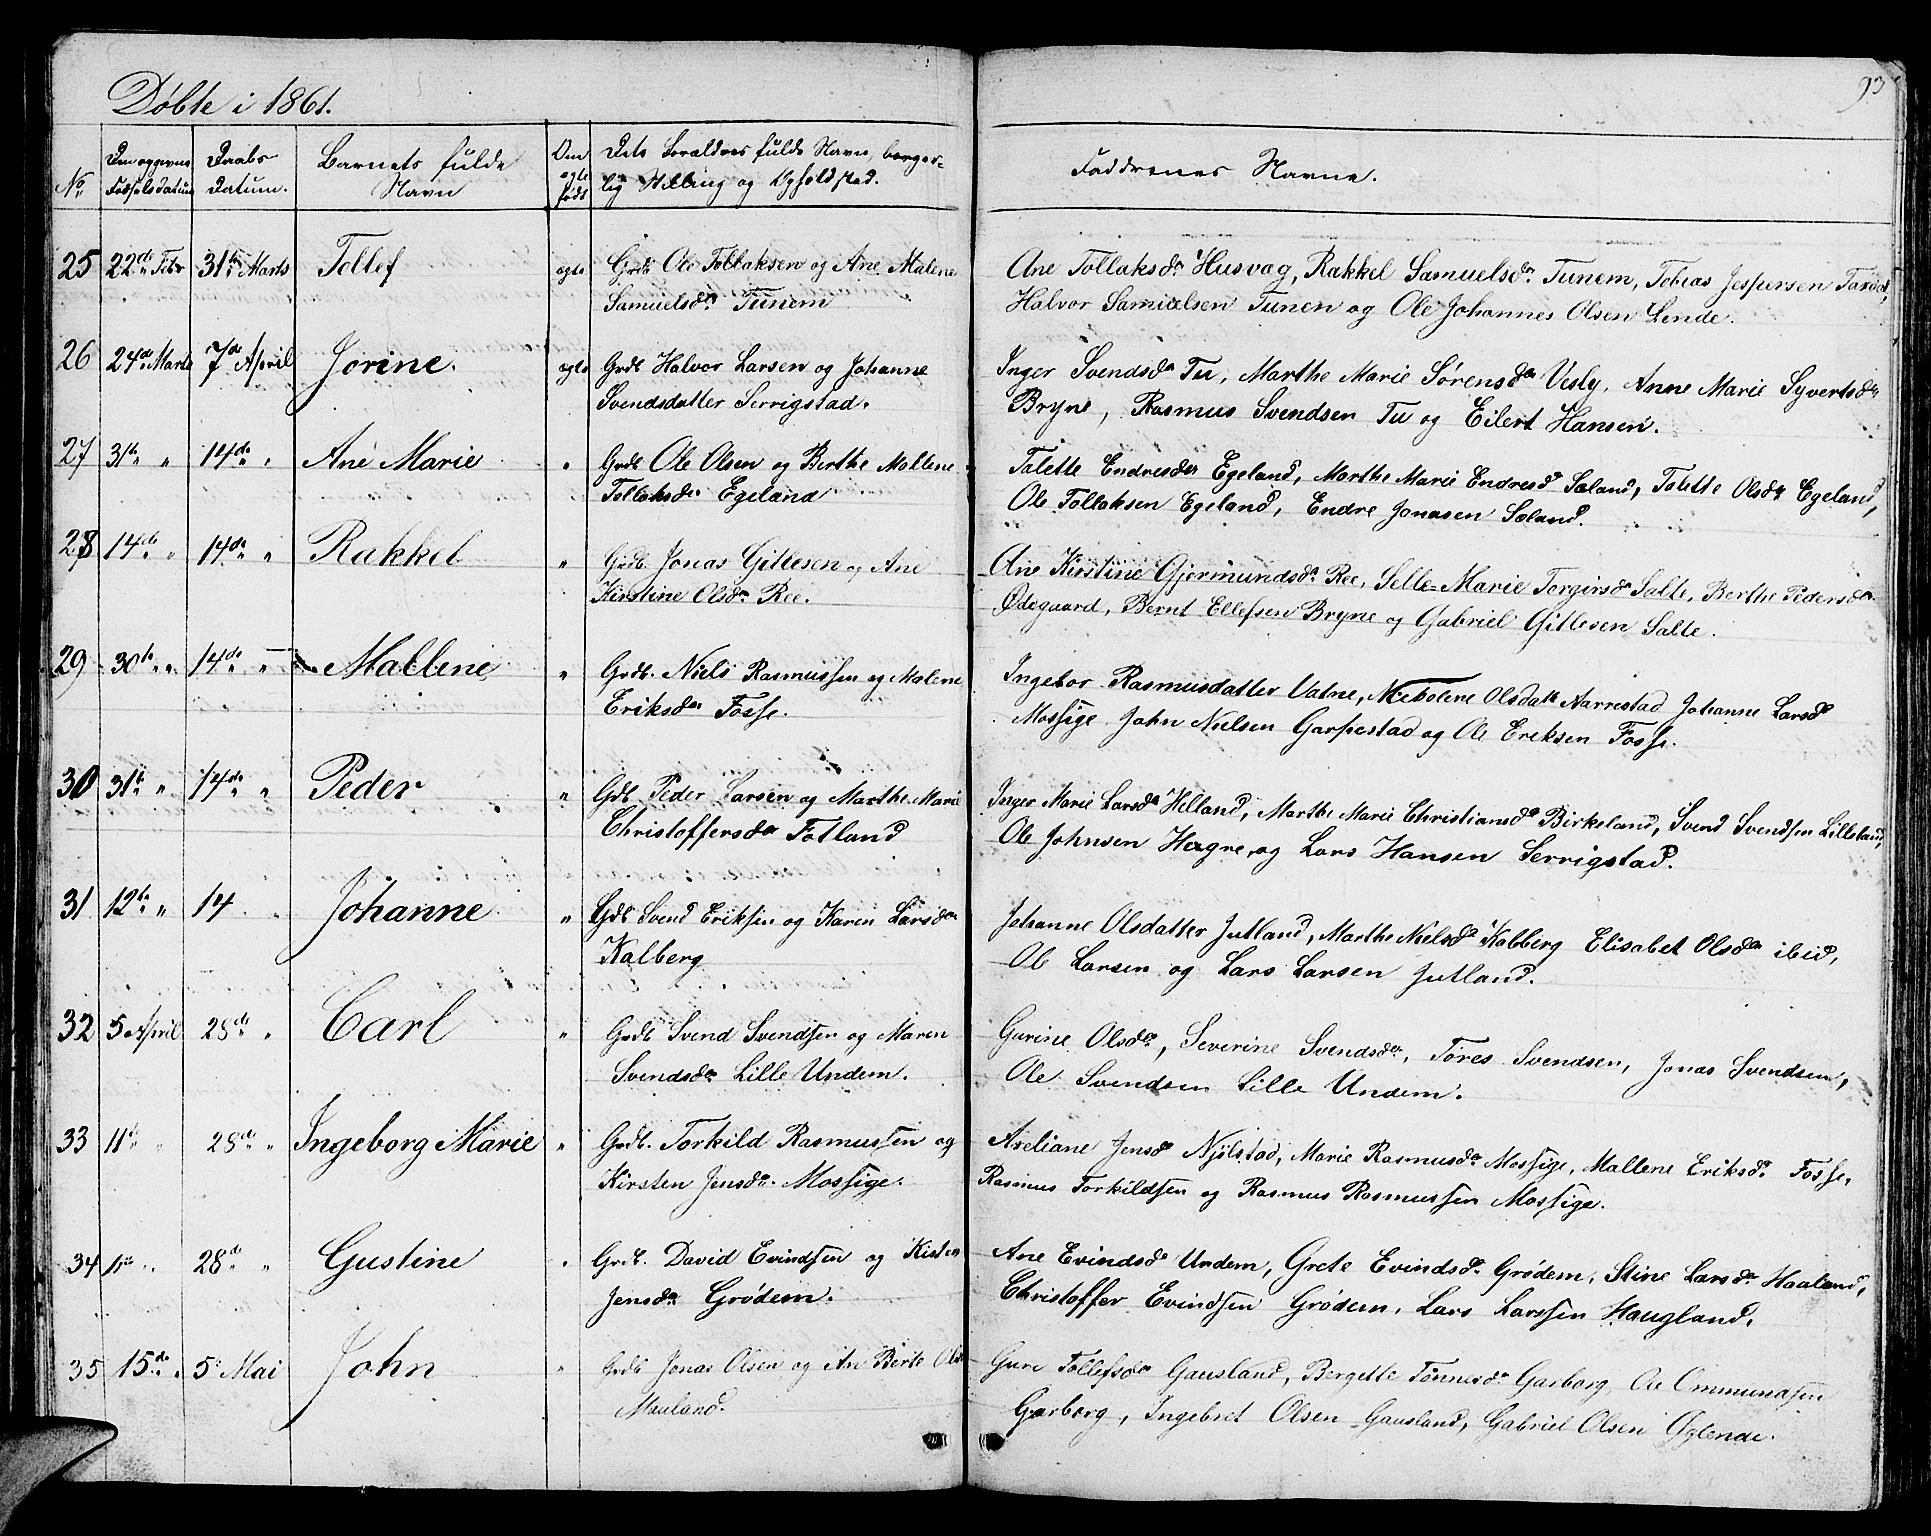 93
Döbte i 1861.
No
Den opgivne Födselsdatum
Daabs Datum.
Barnets fulde Navn
Om ægte født
Dets Foraldres fulde Navn, borger-
lig Stilling og Opholdsted.
Faddrenes Navne.
25 22de Febr 31te Marts Tollef ægte Grdb Ole Tollaksen og Ane Malene
Samuelsdr Tunem
Ane Tollaksdr Husvag, Rakkel Samuelsdr Tunem, Tobias Jespersen
Halvor Samuelsen Tunen og Ole Johannes Olsen Lende.
26 24de Marts 7de April Jorine. ægte Grdb Halvor Larsen og Johanne
Svendsdatter Serrigstad.
Inger Svendsdr Tu, Marthe Marie Sørensdr Vesly, Anne Marie Syvertsdr
Bryne, Rasmus Svendsen Tu og Eilert Hansen.
27 31te " 14de " Ane Marie " Grdb Ole Olsen og Berthe Mallene
Tollaksdr Egeland
Tolette Endresdr Egeland, Marthe Marie Endresdr Sæland, Tolette Olsdr Egeland,
Ole Tollaksen Egeland, Endre Jonasen Sæland.
28 14de " 14de " Rakkel " Grdb. Jonas Gitlesen og Ane
Kirstine Olsdr Ree.
Ane Kirstine Gjermundsdr Ree, Selle Marie Torgirsdr Salte, Berthe Pedersdr
Ødegaard, Bernt Ellefsen Bryne og Gabriel Gitlesen Salte.
29 30te " " 14de " Mallene " Grdb. Niels Rasmussen og Malene
Eriksdr Fosse.
Ingebor Rasmusdatter Vatne, Olsdatr Aarrestad Johanne Larsdr
Mossige John Nielsen Garpestad og Ole Eriksen Fosse.
30 31te " 14de " Peder " Gdb Peder Larsen og Marthe Marie
Christoffersdr Fotland
Inger Marie Larsdr Helland, Marthe Marie Christiansdr Birkeland, Svend Svendsen Lilleland,
Ole Johnsen Høgre, og Lars Hansen Serrigstad.
31 12te " 14 Johanne " Gdb Svend Eriksen og Karen Larsdr
Kalberg
Johanne Olsdatter Jutland, Marthe Nielsdr Kalberg Elisabet Olsdr ibid,
Ole Larsen og Lars Larsen Jutland.
32 5 April 28de " Carl " Grdb Svend Svendsen og Maren
Svendsdr Lille Undem.
Gurine Olsdr, Severine Svendsdr, Tores Svendsen, Jonas Svendsen,
Ole Svendsen Lille Undem.
33 11te " 28de " Ingeborg Marie " Grdb. Torkild Rasmussen og
Kirsten Jensdr. Mossige.
Axeliane Jensdr Njølstad, Marie Rasmusdr Mossige, Mallene Eriksdr Fosse,
Rasmus Torkildsen og Rasmus Rasmussen Mossige.
34 11te " 28de " Gustine " Grdb. David Evindsen og Kisten
Jensdr Grödem.
Ane Evindsdr Undem, Grete Evindsdr Grödem, Stine Larsdr Haaland,
Christoffer Evindsen Grödem, Lars Larssen Haugland.
35 15de " 5te Mai John " Grdb Jonas Olsen og Ane Berte Olsdr
Mauland.
Guri Tollefsdr Gausland, Bergette Tønnesdr Garborg, Ole Ommundsen
Garborg, Ingebret Olsen Gausland, Gabriel Olsen Øglende.